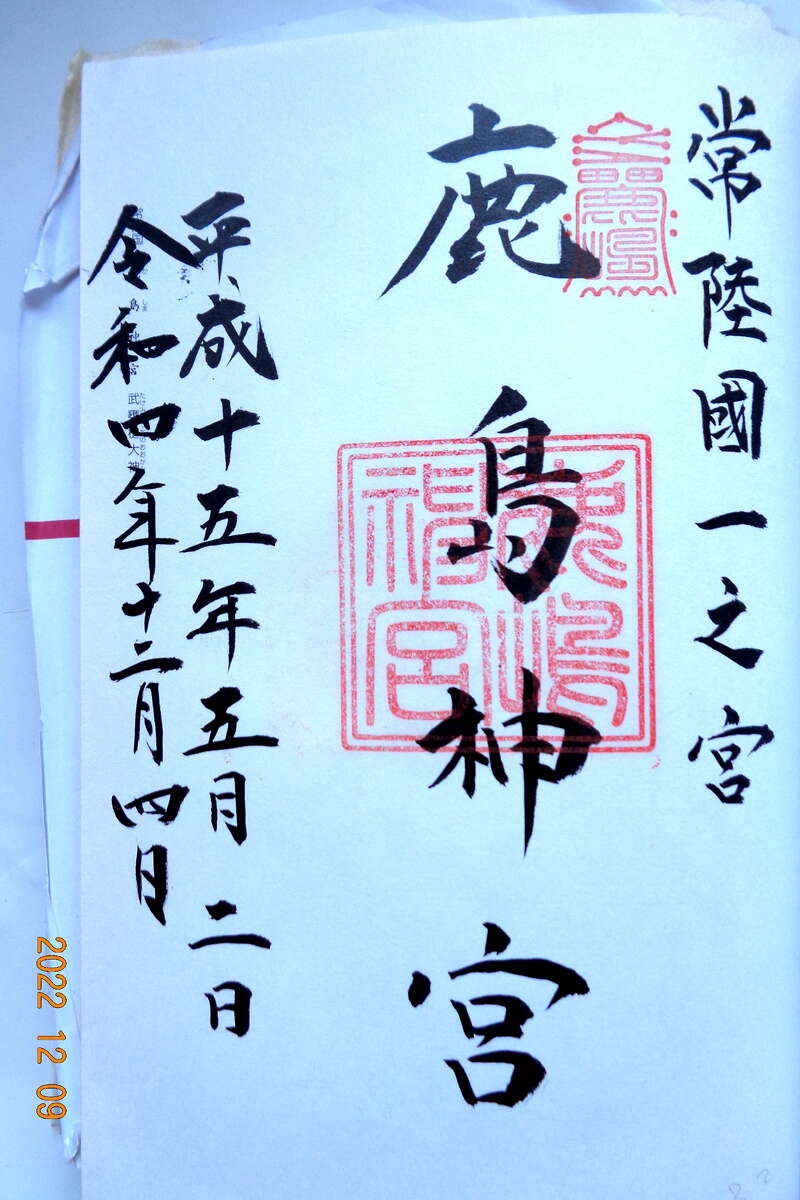 常陸國一之宮
鹿島神宮
鹿嶋神宮
平成十五年五月二日
令和四年十二月四日
武甕槌大神
2022 12 09